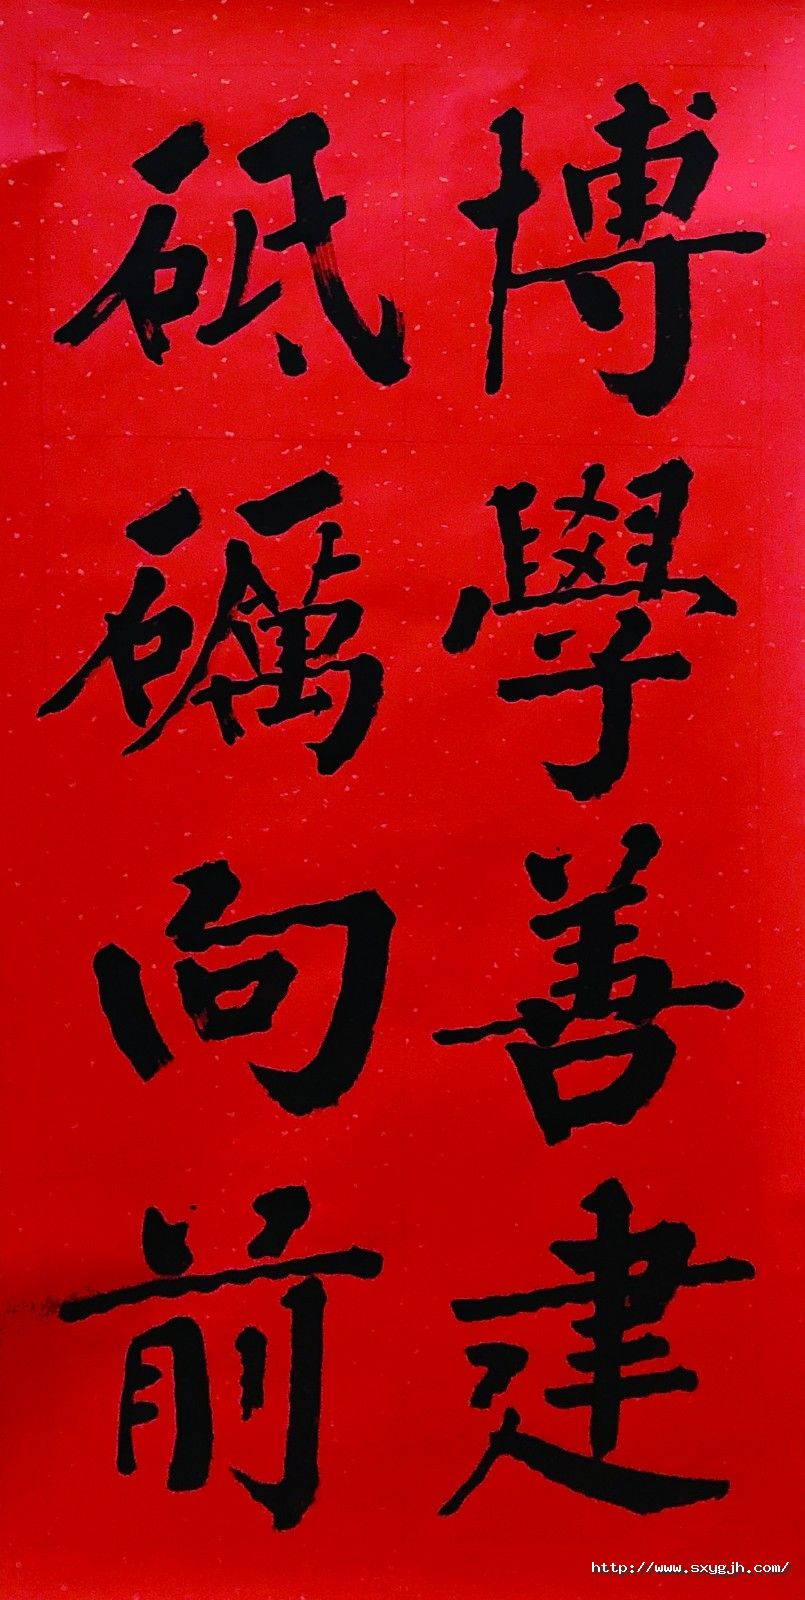 博學善建
砥礪向前
http://www.sxygjh.com/